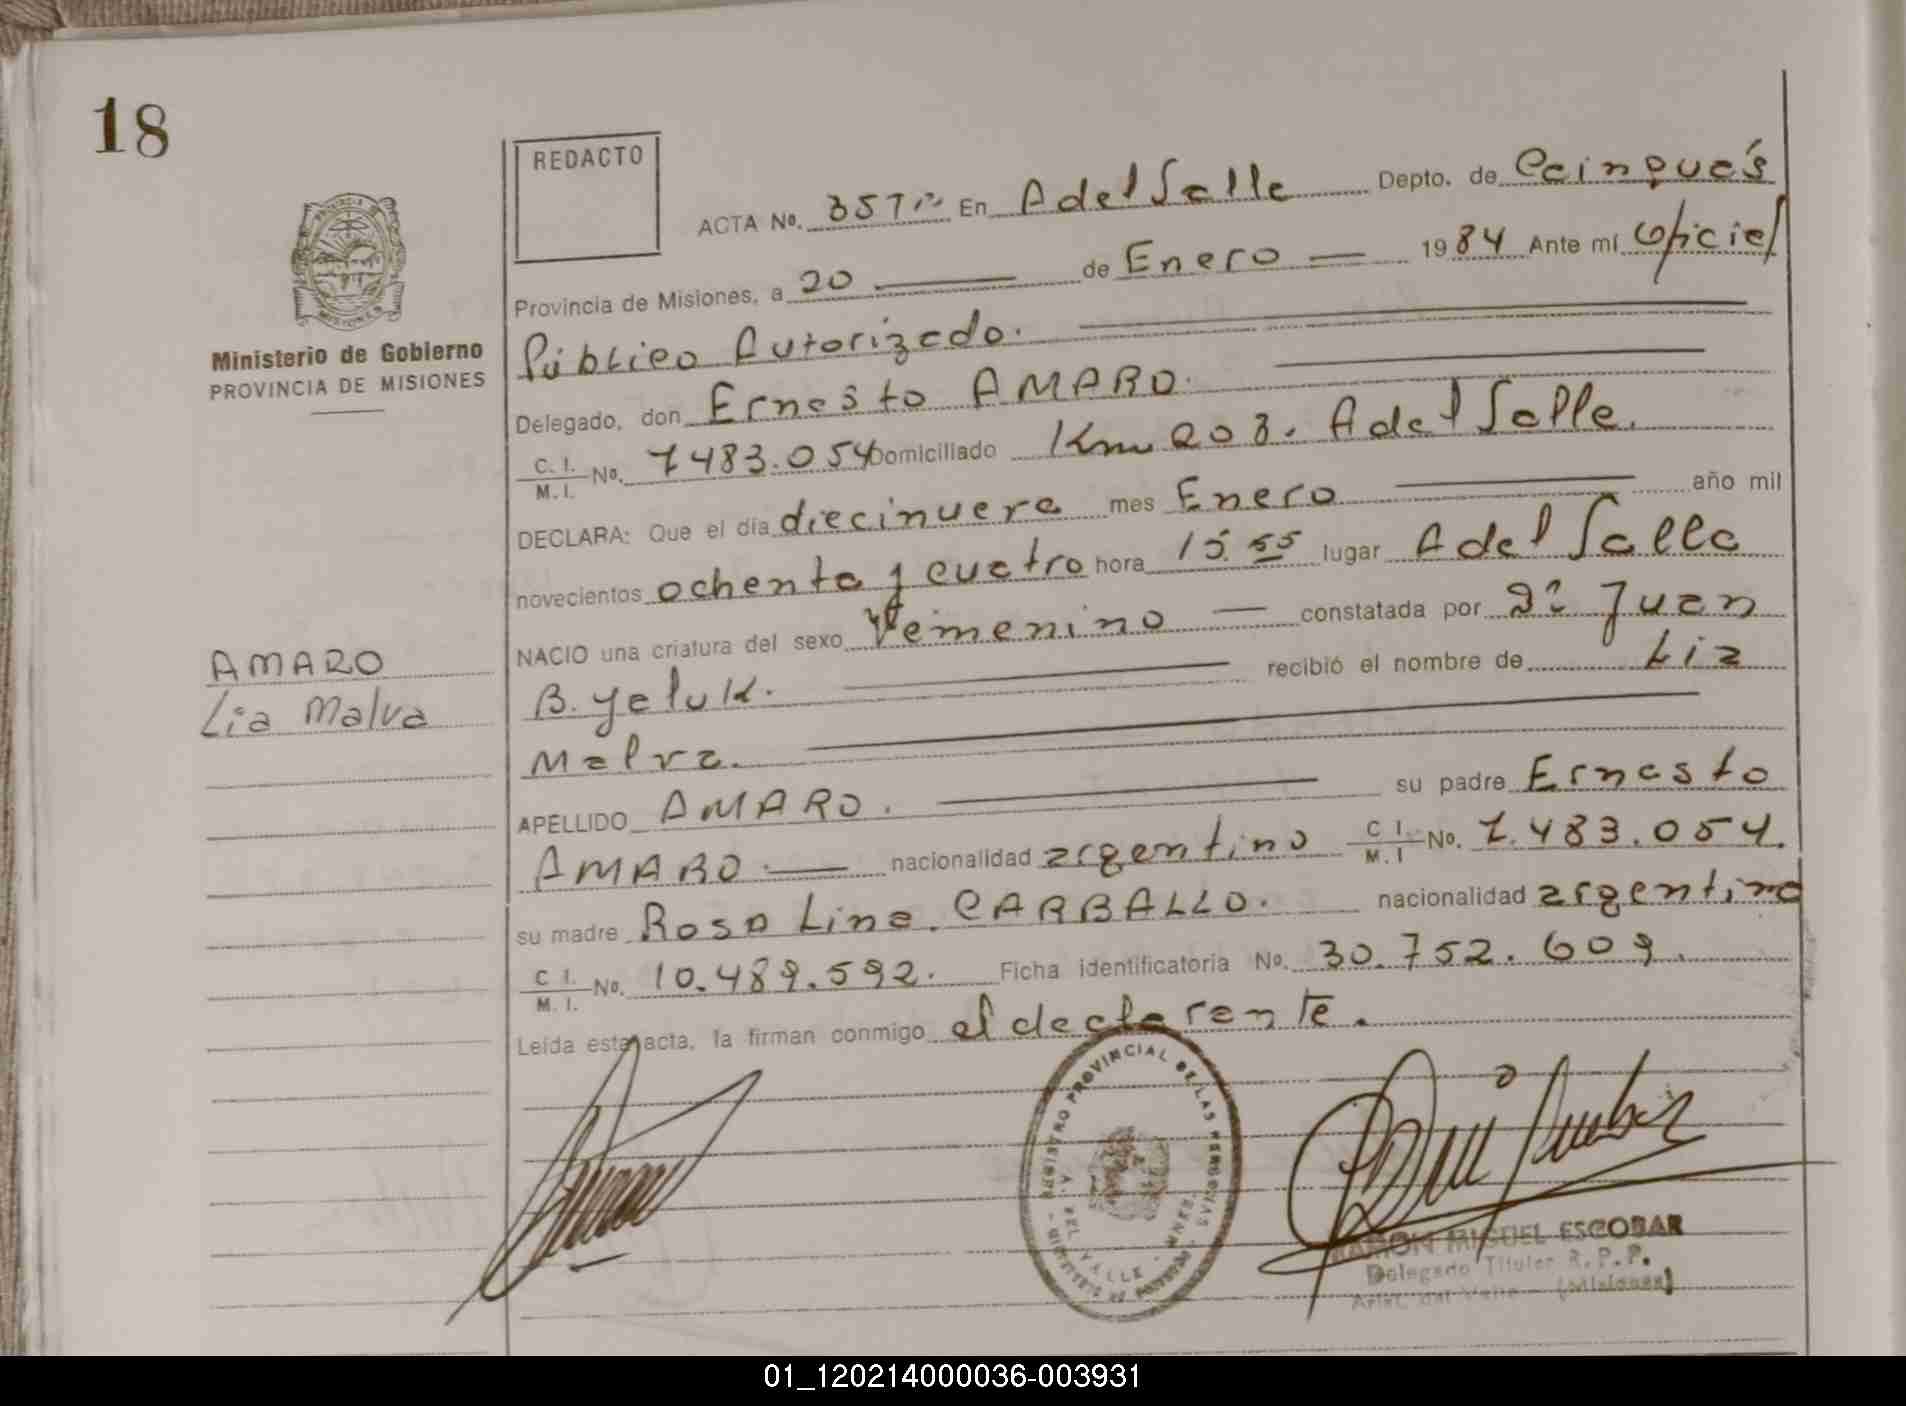 18
REDACTO
ACTA No. 357 En A del Valle Depto. de Cainguás
Provincia de Misiones, a 20 de Enero 1984 Ante mí oficial
Ministerio de Gobierno
PROVINCIA DE MISIONES
Público Autorizado.
Delegado, don Ernesto AMARO.
C. I. / M. I. No. 7483.054 Domiciliado Km 208. A del Valle.
DECLARA: Que el día diecinueve mes Enero año mil
novecientos ochenta y cuatro hora 15.55 lugar A del Valle
NACIO una criatura del sexo Femenino constatada por Juan
AMARO
Lia Malva
B. Yeluk. recibió el nombre de Lia
Malva.
APELLIDO AMARO. su padre Ernesto
AMARO. nacionalidad argentino C I. / M. I No. 7.483.054.
su madre Rosa Lina. CARBALLO. nacionalidad argentina
C I. / M. I. No. 10.489.592. Ficha identificatoria No. 30.752.609.
Leída esta acta, la firman conmigo el declarante.
REGISTRO PROVINCIAL DE LAS PERSONAS
A. DEL VALLE - MNES.
MINISTERIO DE GOBIERNO
RAMON MIGUEL ESCOBAR
Delegado Titular R. P. P.
Arist. del Valle - (Misiones)
01_120214000036-003931